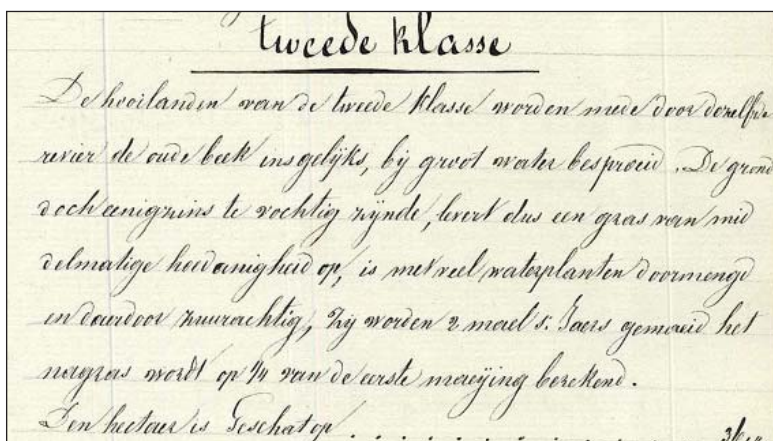 tweede klasse
De hooilanden van de tweede klasse worden mede door dezelfde
revier de oude beek insgelijks, bij groot water besproeid. De grond
doch eenigzins te vochtig zijnde, levert dus een gras van mid
delmatige hoedanigheid op, is met veel waterplanten doormengd
en daardoor zuurachtig, Zij worden 2 mael s. Jaers gemaeid het
nagras wordt op 1/4 van de eerste maeijing berekend.
Den hectaer is Geschat op